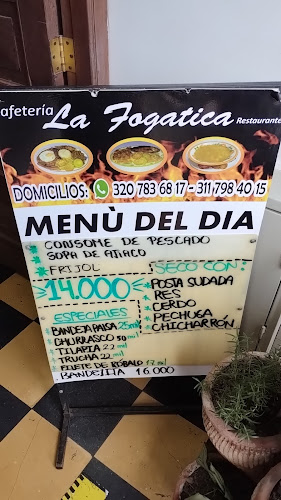 Cafetería
La Fogatica
Restaurante
DOMICILIOS: 320 783 68 17 - 311 798 40 15
MENÙ DEL DIA
CONSOME DE PESCADO
SOPA DE AJIACO
FRIJOL
14.000
SECO CON:
POSTA SUDADA
RES
CERDO
PECHUGA
CHICHARRÓN
ESPECIALES
BANDEJA PAISA 25mil
CHURRASCO 30mil
TILAPIA 22mil
TRUCHA 22mil
FILETE DE RÓBALO 17mil
BANDEJITA 16.000